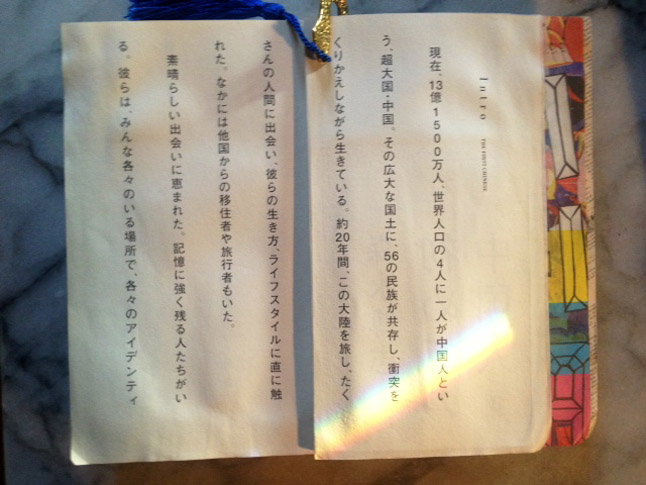 Intro
現在、13億1500万人、世界人口の4人に一人が中国人とい
う、超大国・中国。その広大な国土に、56の民族が共存し、衝突を
くりかえしながら生きている。約20年間、この大陸を旅し、たく
さんの人間に出会い、彼らの生き方、ライフスタイルに直に触
れた。なかには他国からの移住者や旅行者もいた。
素晴らしい出会いに恵まれた。記憶に強く残る人たちがい
る。彼らは、みんな各々のいる場所で、各々のアイデンティ